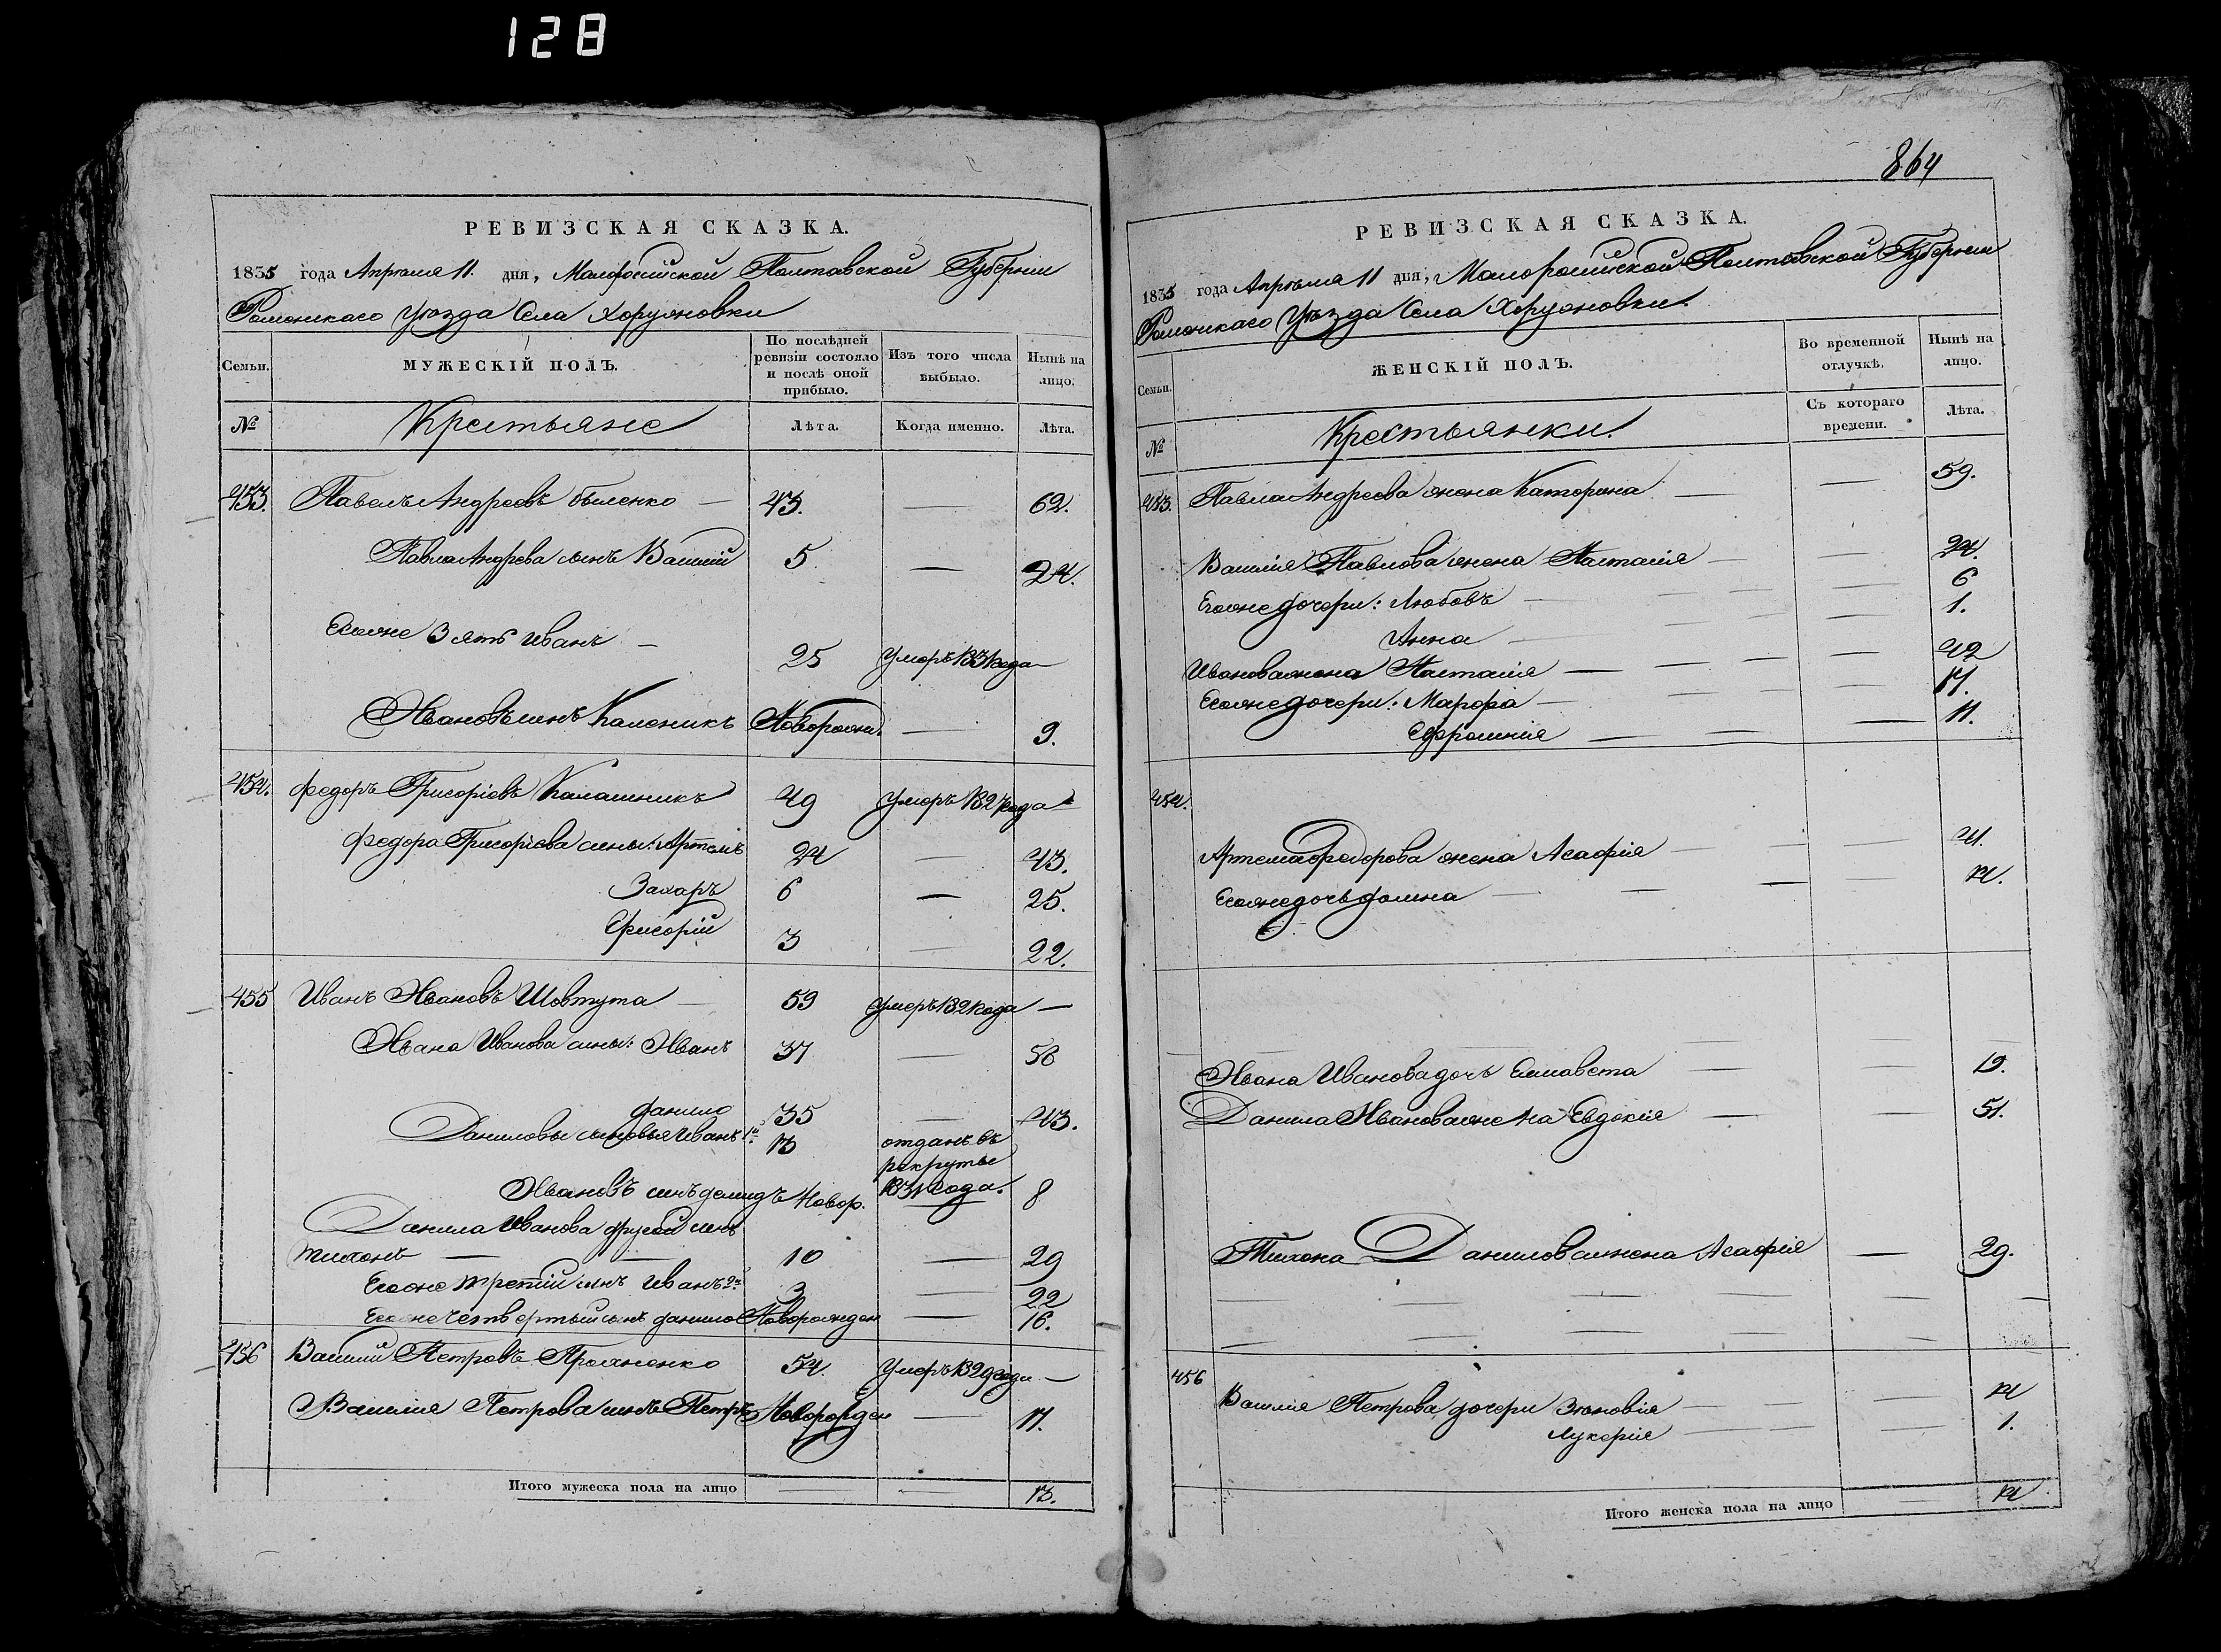 128
РЕВИЗСКАЯ СКАЗКА.
1835 года Апрѣля 11. дня, Малороссійской Полтавской Губерніи
Роменскаго уѣзда Села Хоружовки
Семьи.
МУЖЕСКІЙ ПОЛЪ.
По послѣдней ревизіи состояло и послѣ оной прибыло.
Изъ того числа выбыло.
Нынѣ на лицо.
№ Крестьяне Лѣта. Когда именно. Лѣта.
453. Павелъ Андреевъ Бѣленко — 43. — 62.
Павла Андреева сынъ Василій 5 — 24.
Егоже Зять Иванъ — 25 умеръ 1831 года
Ивановъ сынъ Каленикъ Новорожд. — 9.
454. Федоръ Григоріевъ Калашникъ 49 умеръ 1827 года
Федора Григоріева сыны: Артемъ 24 — 43.
Захаръ 6 — 25.
Григорій 3 — 22.
455 Иванъ Ивановъ Шовтута — 59 умеръ 182 года —
Ивана Иванова сыны: Иванъ 37 — 56
Данило 35 — 43.
Даниловы сыновья Иванъ 1й 13 отданъ въ рекруты 1831 года.
Ивановъ сынъ Демидъ Новор. — 8
Данила Иванова другой сынъ
Тихонъ — — 10 — 29
Егоже третій сынъ Иванъ 2й 3 — 22
Егоже четвертый сынъ Данило Новорожден — 16.
456 Василий Петровъ 54. умеръ 1829 года —
Василия Петрова сынъ Петръ Новорожден — 17.
Итого мужеска пола на лицо — — 13.
864
РЕВИЗСКАЯ СКАЗКА.
1835 года Апрѣля 11 дня, Малоросийской Полтавской Губерніи
Роменскаго Уѣзда Села Хоружовки.
Семьи.
ЖЕНСКІЙ ПОЛЪ.
Во временной отлучкѣ.
Нынѣ на лицо.
№ Крестьянки. Съ котораго времени. Лѣта.
453. Павла Андреева жена Катерина — — 59.
Василия Павлова жена Настасія — — 24.
Егоже дочери: Любовъ — — 6
Анна — — 1.
Иванова жена Настасія — — 42
Егоже дочери: Марфа — — 17.
Ефросинія — — 11.
454.
Артема Федорова жена Агафія — — 41.
Егоже дочь Домна — — 14.
Ивана Иванова дочь Елисавета — — 19.
Данила Иванова жена Евдокія — — 51.
Тихона Данилова жена Агафія — 29.
456 Василия Петрова дочери Зѣновія — — 14
Лукерія — — 1.
Итого женска пола на лицо — 14